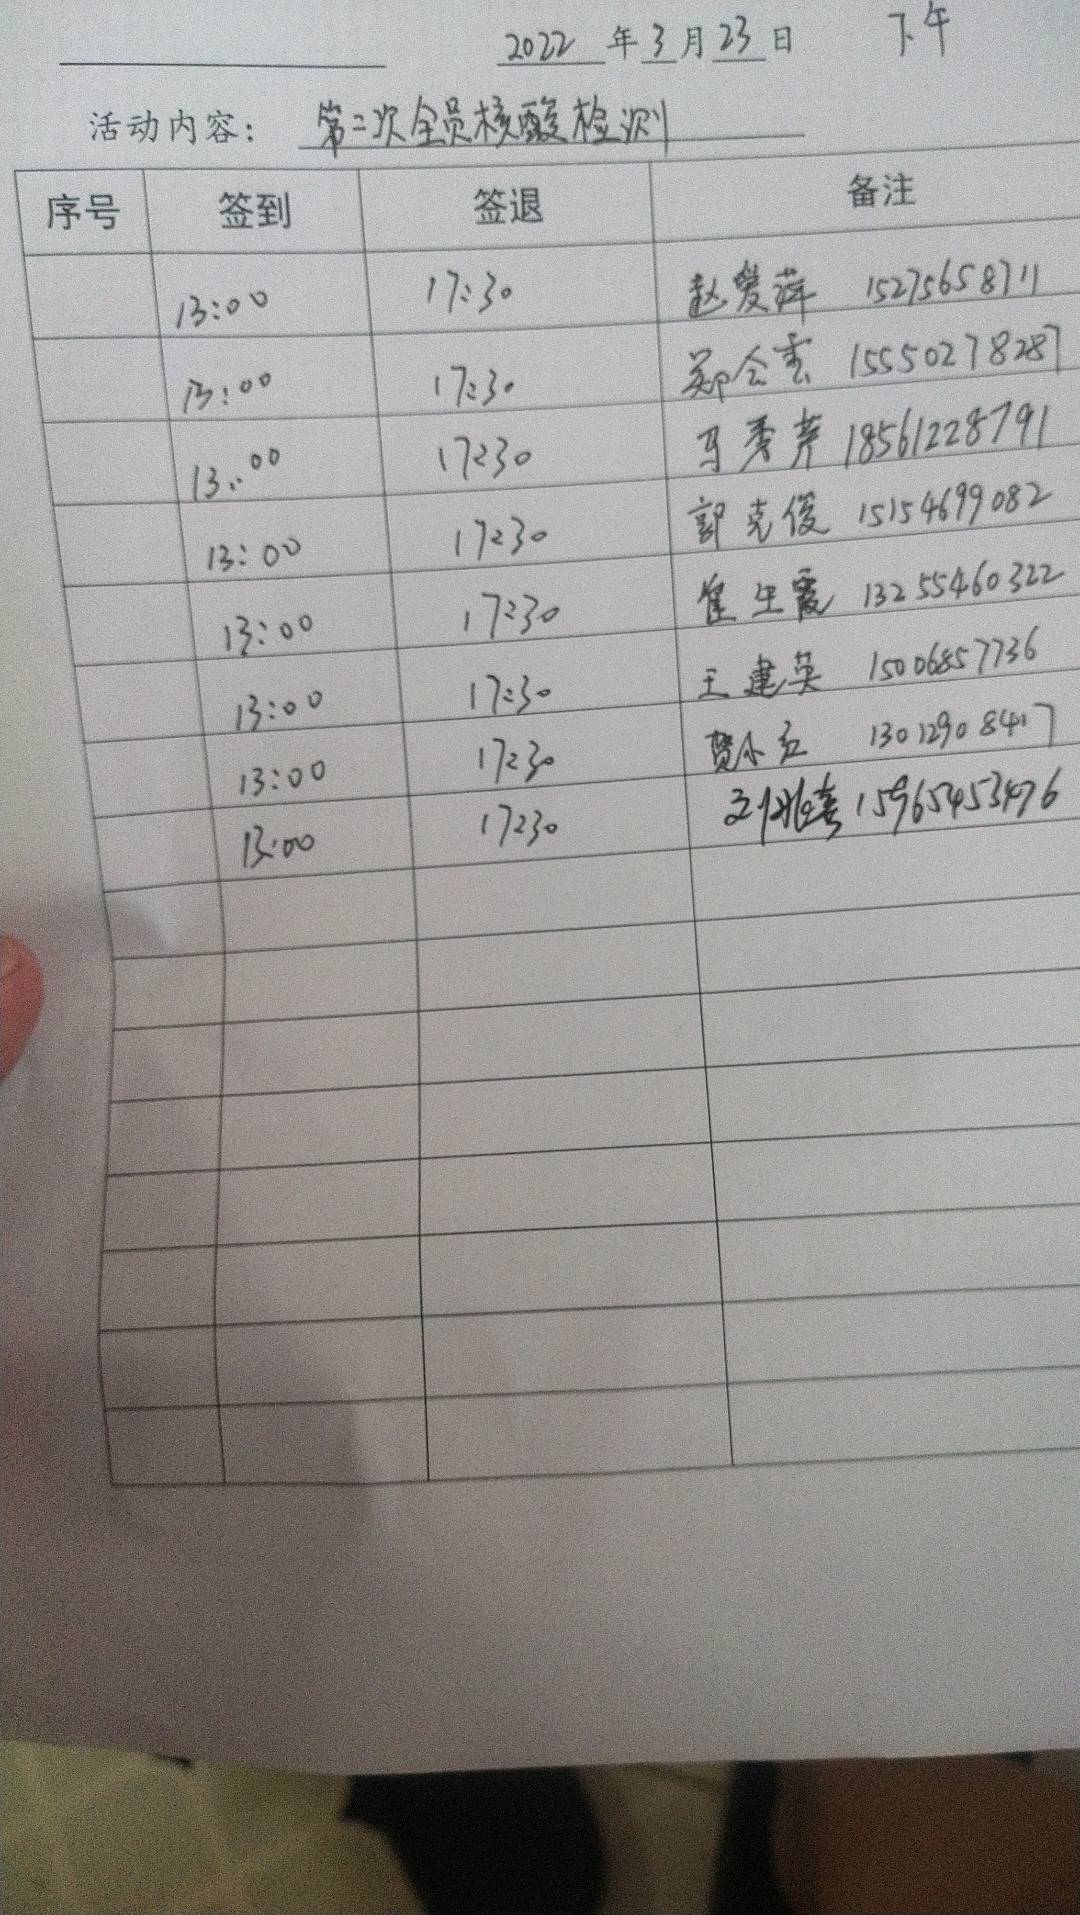 2022 年 3 月 23 日 下午
活动内容: 第二次全员核酸检测
序号 签到 签退 备注
13:00 17:30 赵爱萍 15275658711
13:00 17:30 郑会云 15550278287
13:00 17:30 马秀芹 18561228791
13:00 17:30 郭克俊 15154699082
13:00 17:30 崔生霞 13255460322
13:00 17:30 王建英 15006857736
13:00 17:30 贾小红 13012908417
13:00 17:30 刘 15965453476